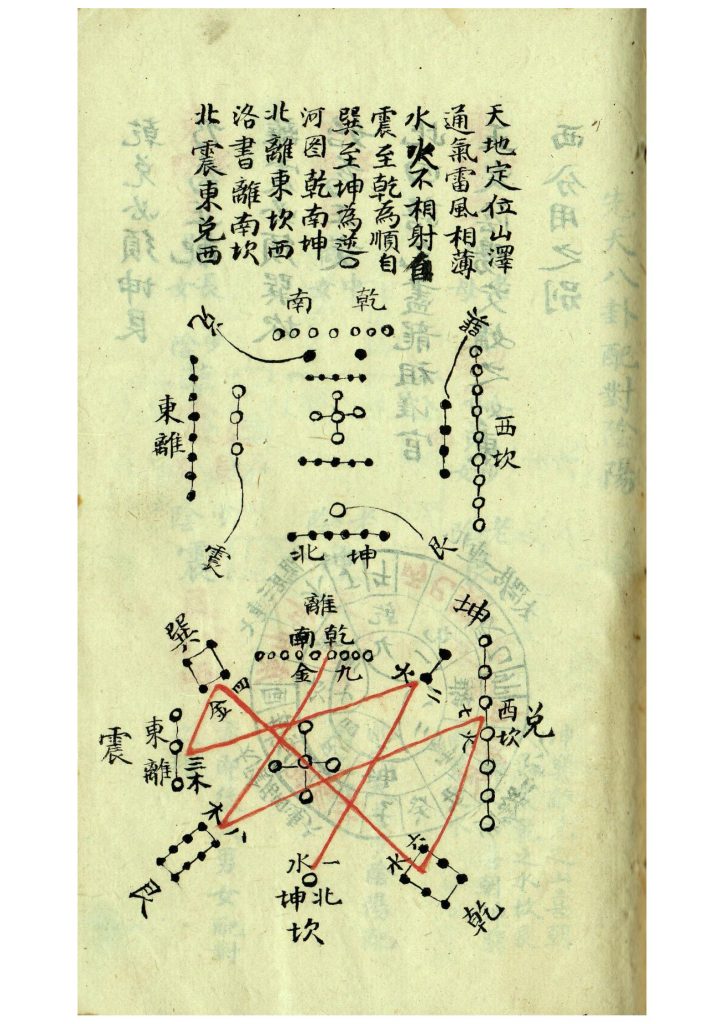 天地定位山澤
通氣雷風相薄
水火不相射自
震至乾為順自
巽至坤為逆○
河图乾南坤
北離東坎西
洛書離南坎
北震東兌西
乾南
西坎
東離
震
艮
坤北
離
乾南
九金
巽
四金
坤
二
兌
西坎
七火
震
東離
三木
艮
八木
乾
六水
一水
北坤
坎